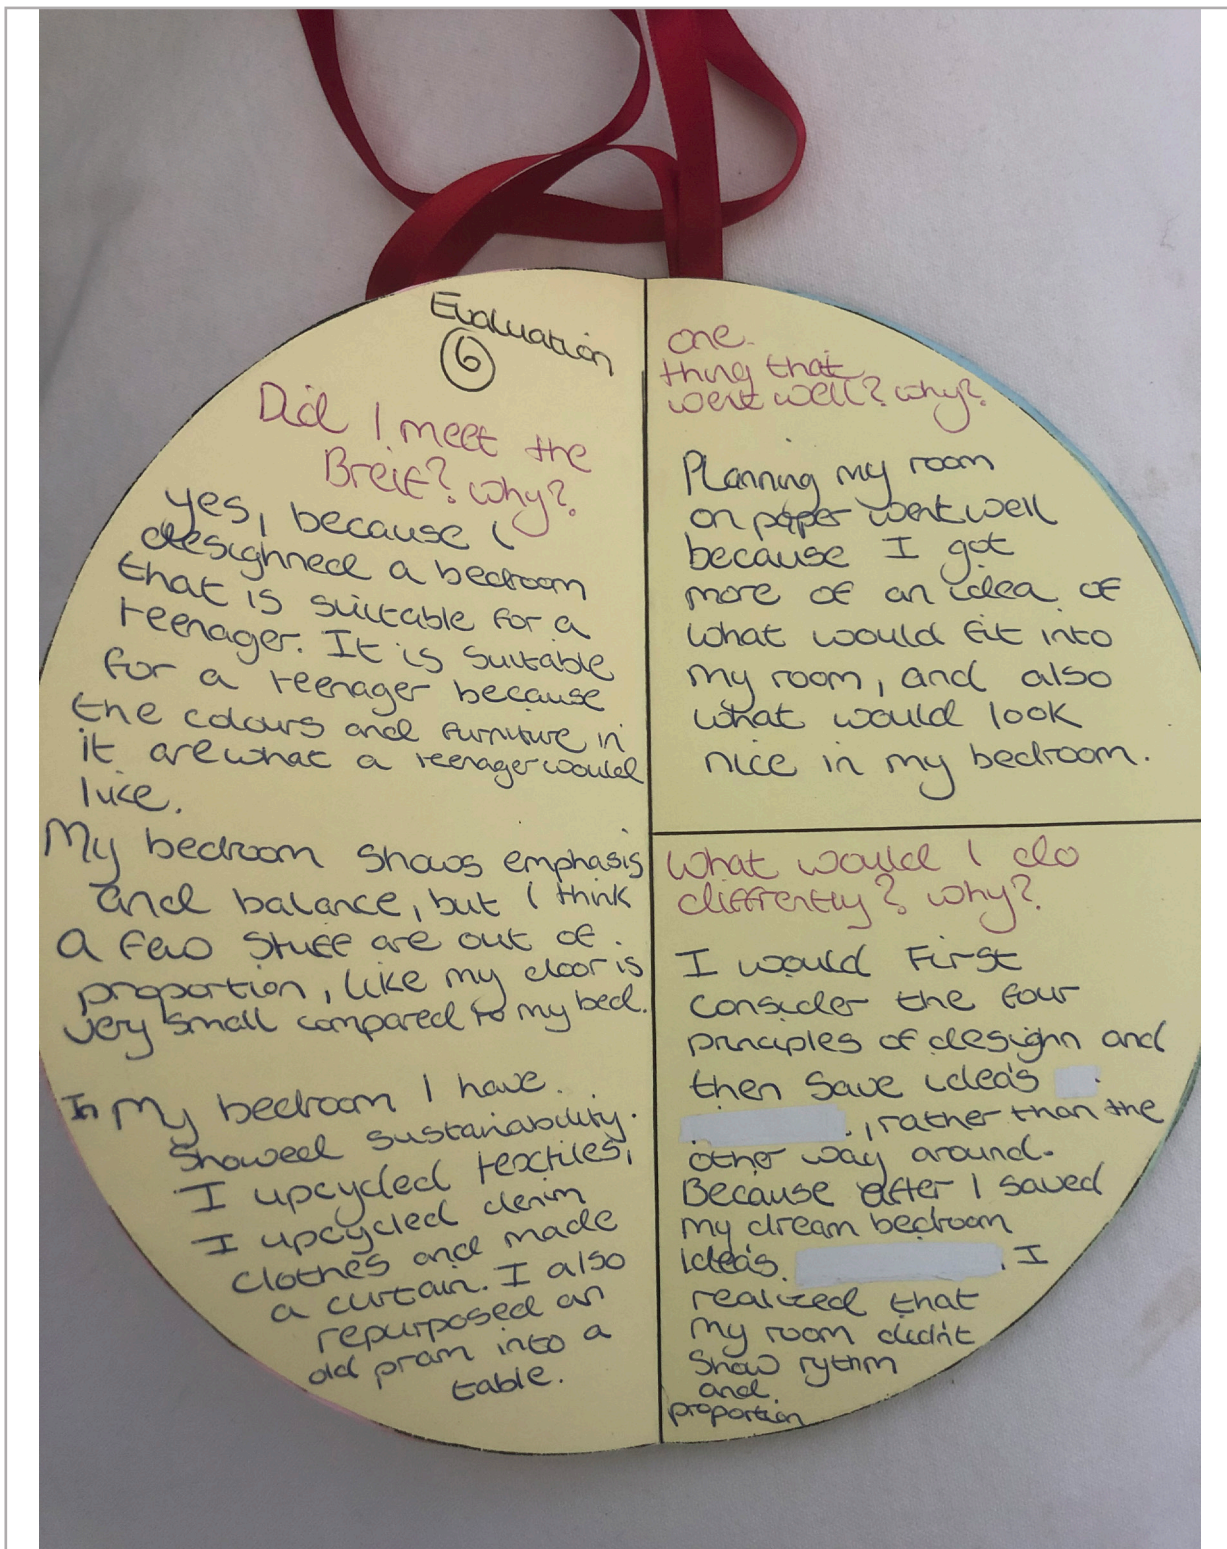 Evaluation
6
Did I meet the
Breif? why?
yes, because I
desighned a bedroom
that is suitable for a
teenager. It is suitable
for a teenager because
the colours and furniture in
it are what a teenager would
like.
My bedroom shows emphasis
and balance, but I think
a few stuff are out of
proportion, like my door is
very small compared to my bed.
In my bedroom I have
showed sustainability.
I upcycled textiles,
I upcycled denim
clothes and made
a curtain. I also
repurposed an
old pram into a
table.
one
thing that
went well? why?
Planning my room
on paper went well
because I got
more of an idea of
what would fit into
my room, and also
what would look
nice in my bedroom.
What would I do
diffrently? why?
I would First
consider the four
principles of desighn and
then save idea's
, rather than the
other way around.
Because after I saved
my dream bedroom
idea's. I
realized that
my room didn't
show rythm
and
proportion